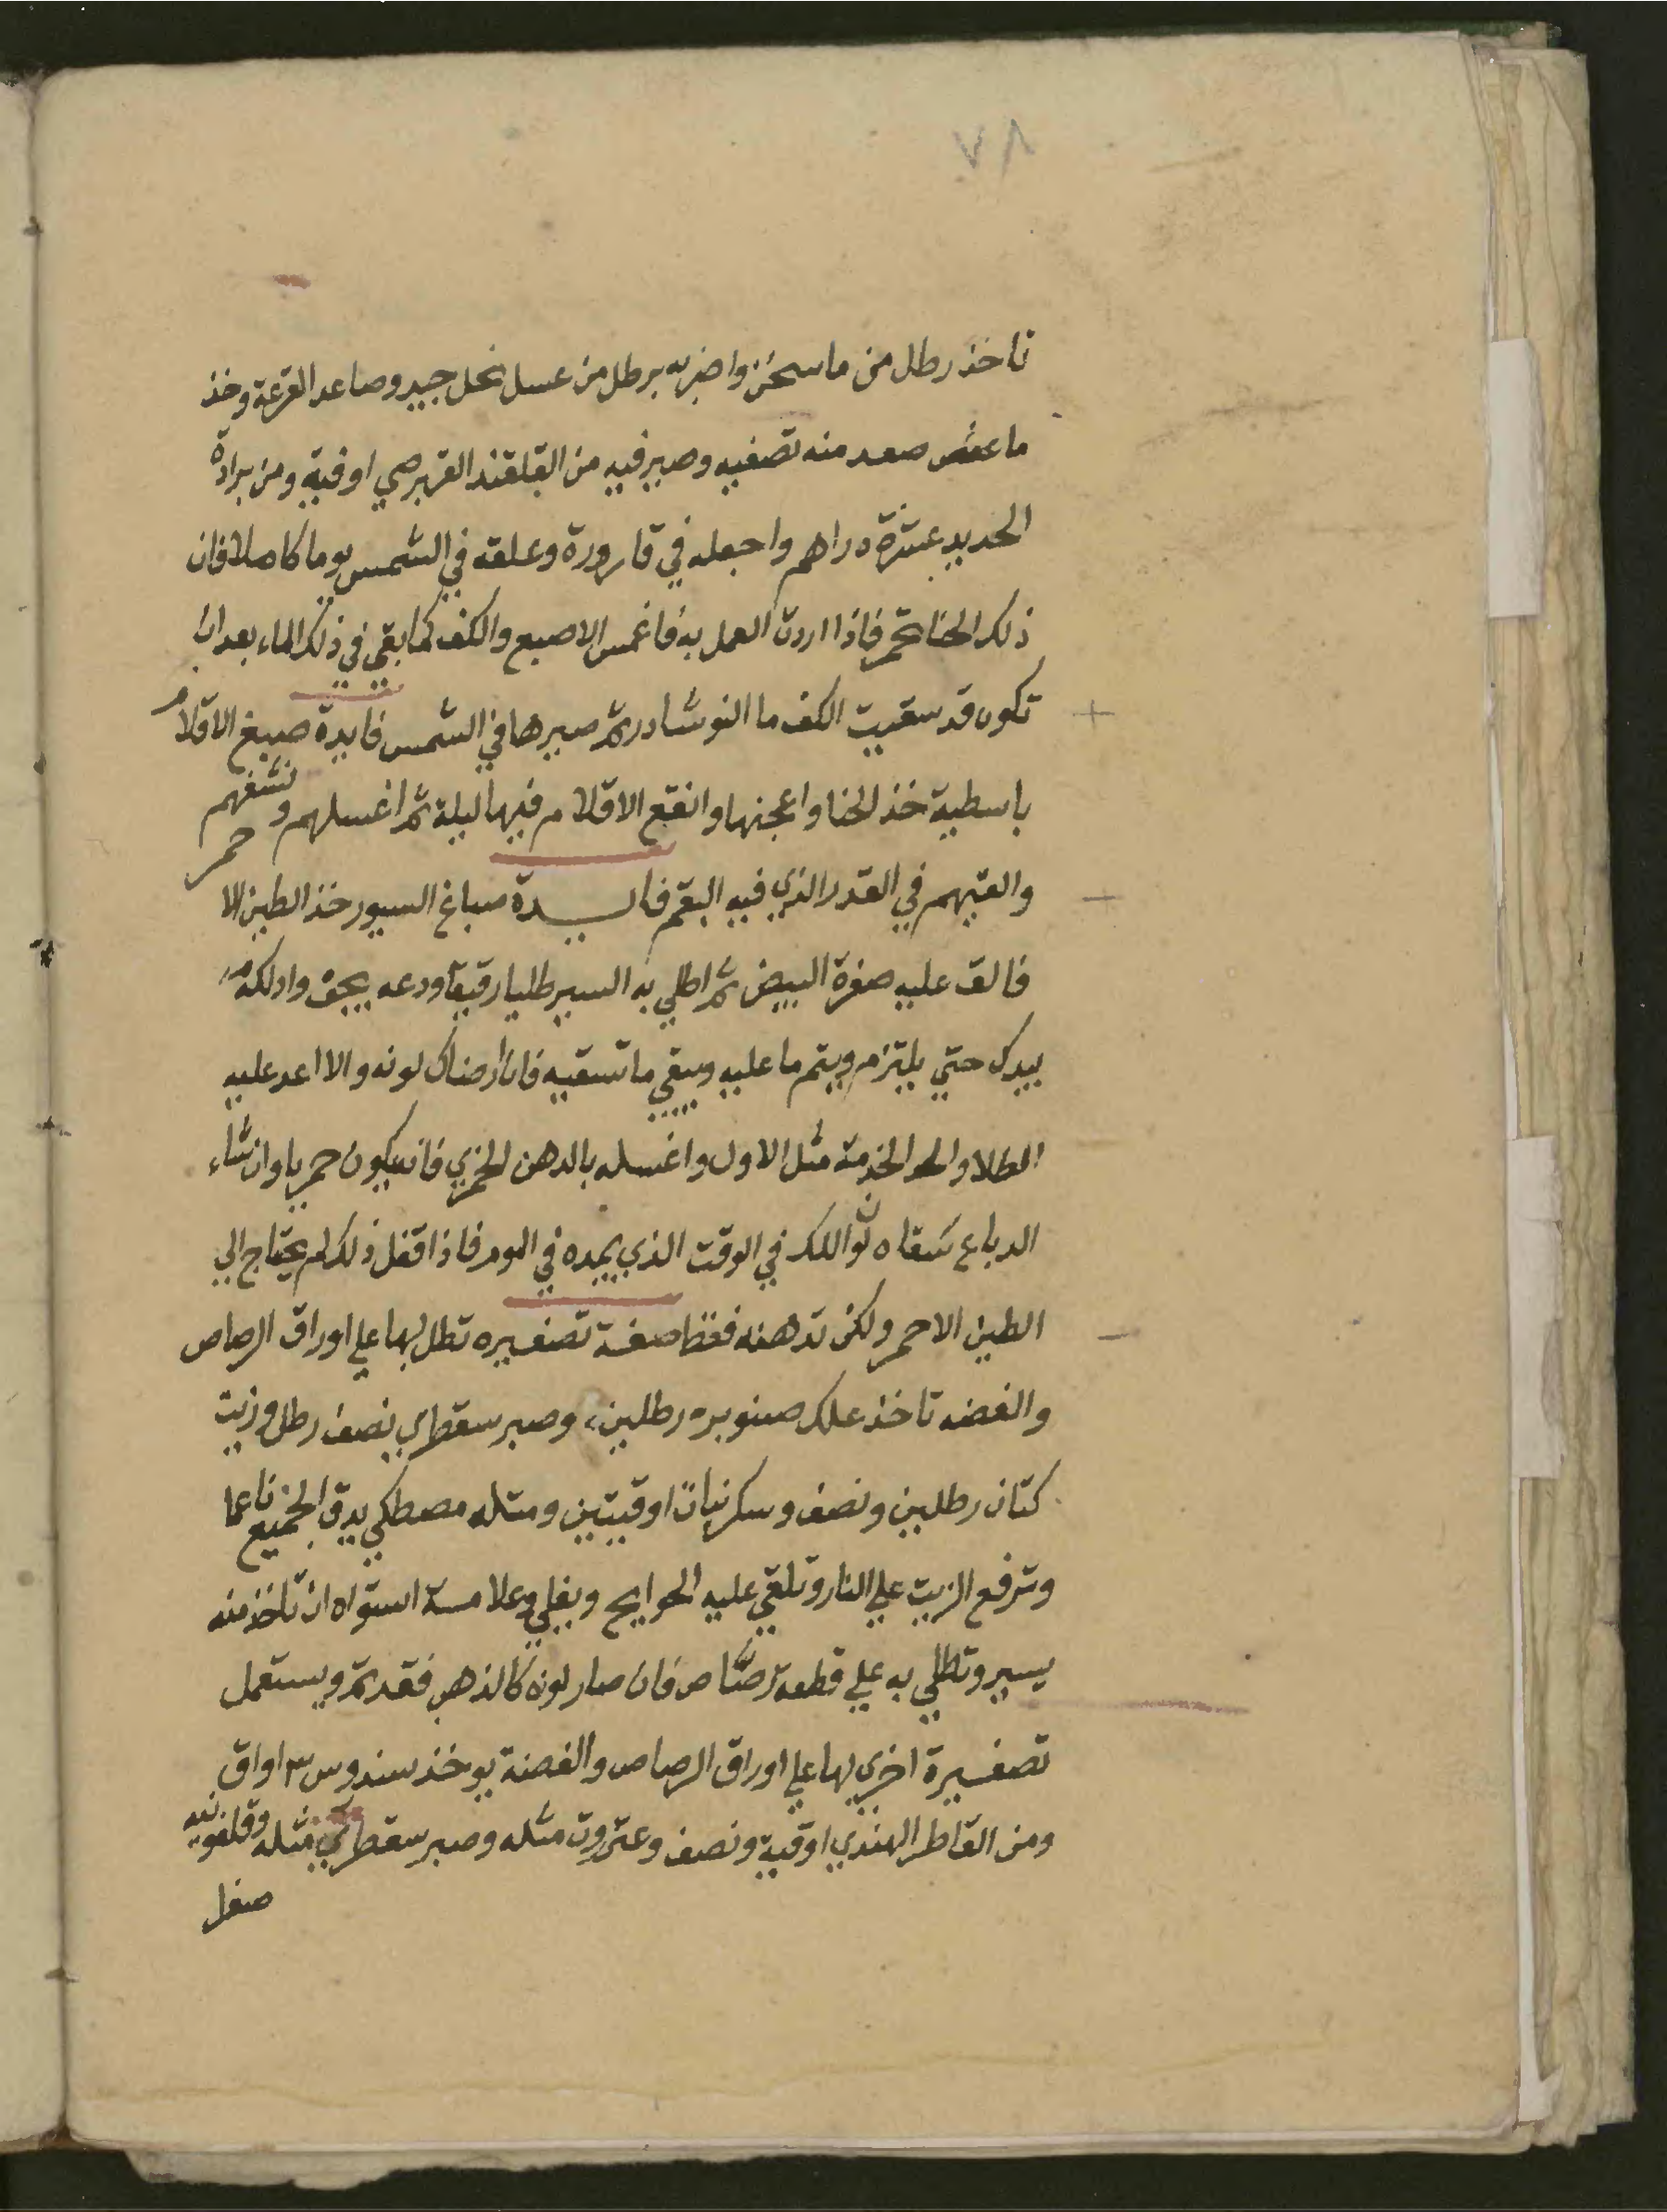 ٧٨
تاخذ رطل من ما سخن واضربه برطل من عسل نحل جيد وصاعد القرعة وخذ
ما صعد منه تصفيه وصير فيه من القلقند القبرصي اوقية ومن برادة
الحديد عشرة دراهم واجعله في قارورة وعلقه في الشمس يوما كاملا فان
ذلك الحنا تحمر فاذا اردت العمل به فاغمس الاصبع والكف كما بقي في ذلك الماء بعد ان
تكون قد سقيت الكف ما النوشادر ثم صيرها في الشمس فايدة صبغ الاقلام
باسطية خذ الحنا واعجنها وانقع الاقلام فيها ليلة ثم اغسلهم ونشفهم
والقيهم في القدر الذي فيه البقم فايدة صباغ السيور خذ الطين الاحمر
فالق عليه صفرة البيض ثم اطلي به السير طليا رقيقا ودعه يجف وادلكه
بيدك حتي يلتزم ويتم ما عليه وسقي ما تسقيه فان ارضاك لونه والا اعد عليه
الطلا والخدمة مثل الاول واغسله بالدهن الخمري فانه يكون حمريا وان شاء
الدباغ سقاه لون اللك في الوقت الذي يمده في اللوم فاذا فعل ذلك لم يحتاج الي
الطين الاحمر ولكن تدهنه فقط صفة تصفيره تطلي بها علي اوراق الرصاص
والفضه تاخذ علك صنوبره رطلين وصبر سقطري نصف رطل وزيت
كتان رطلين ونصف وسكر نبات اوقيتين ومثله مصطكي يدق الجميع ناعما
وترفع الزيت علي النار وتلقي عليه الحوايج ويغلي وعلامة استواه ان تاخذ منه
يسير وتطلي به علي قطعة رصاص فان صار لونه كالذهب فقد تم ويستعمل
تصفيرة اخري لها علي اوراق الرصاص والفضة يوخذ سندروس ٣ اواق
ومن القاطر الهندي اوقية ونصف وعنزروت مثله وصبر سقطري مثله وقلفونيه